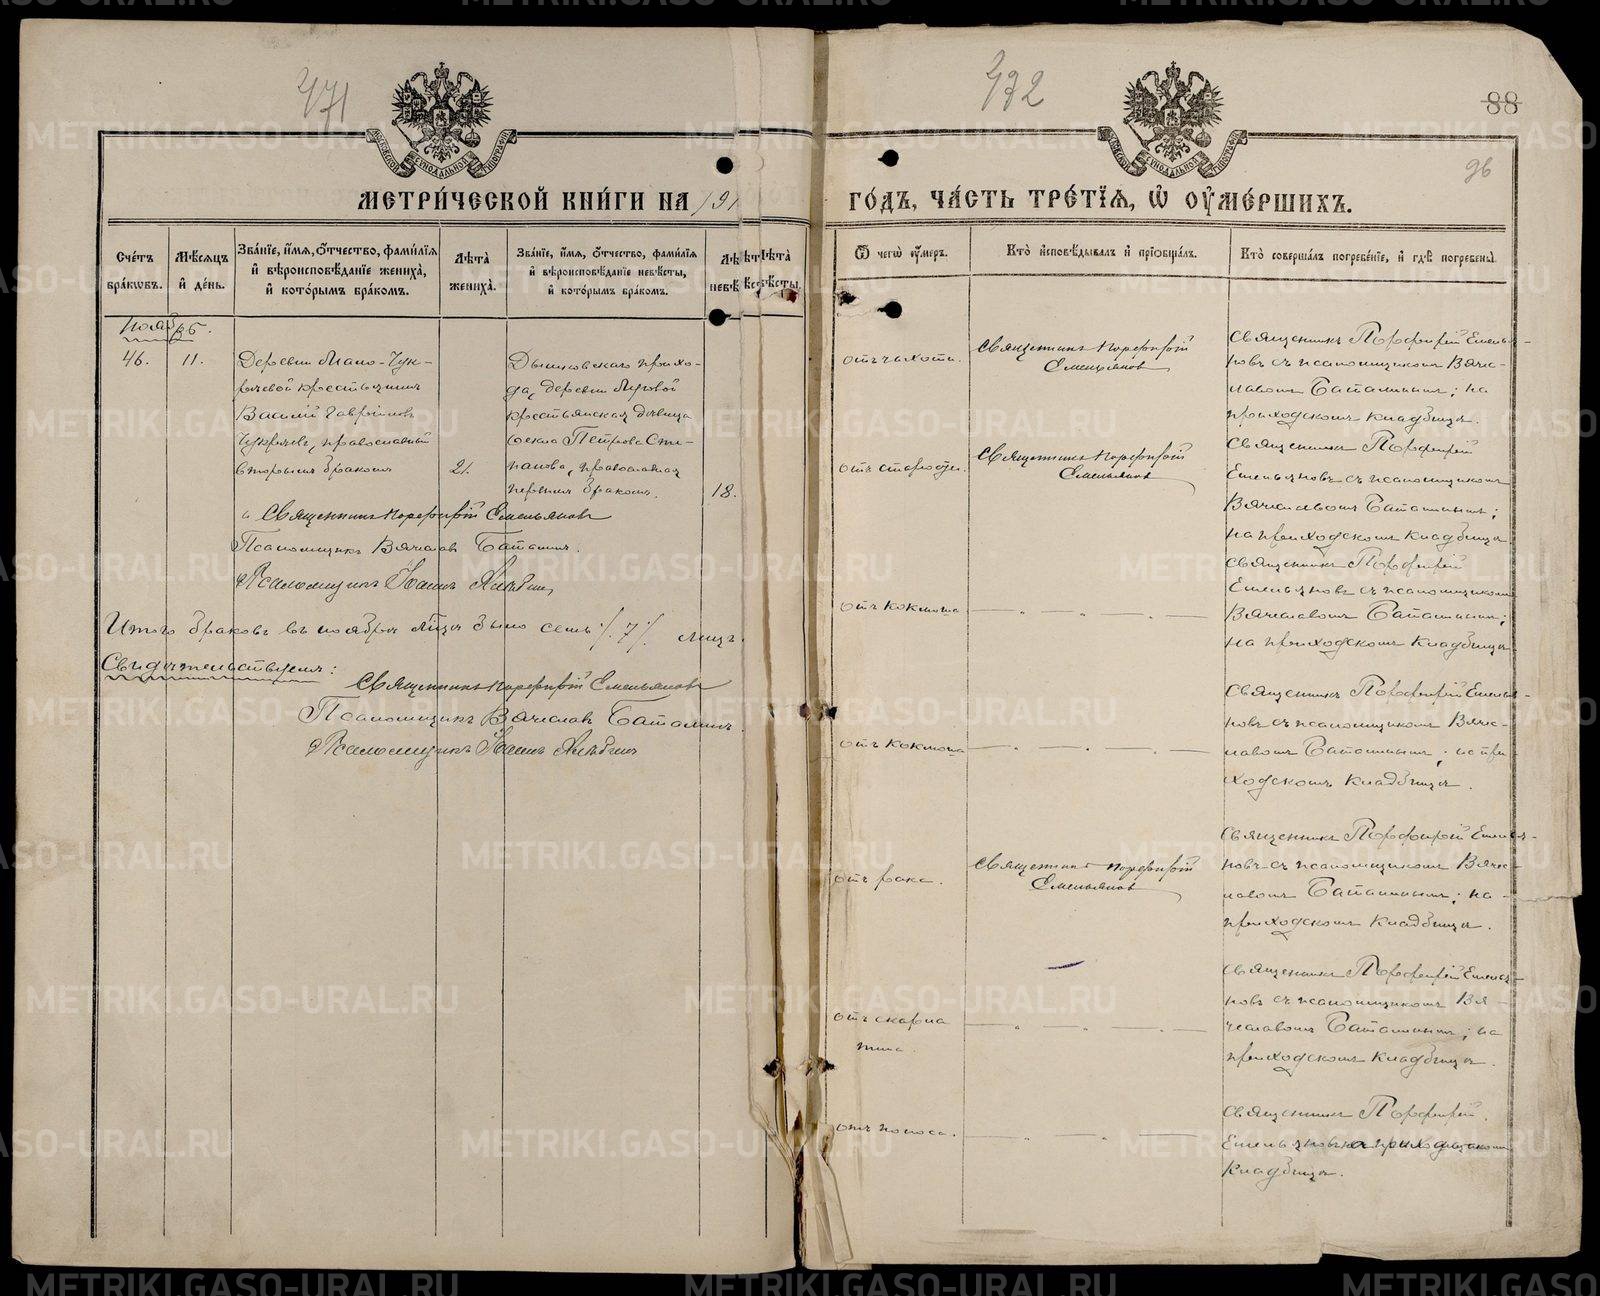 471
МЕТРИ́ЧЕСКОЙ КНИ́ГИ НА 191
Сче́тъ бра́кѡвъ.
Мѣ́сяцъ и҆ де́нь.
Зва́нїе, и҆́мя, ѻ҆́тчество, фами́лїя и҆ вѣроисповѣ́данїе жениха̀, и҆ кото́рымъ бра́комъ.
Лѣ́та жениха̀.
Зва́нїе, и҆́мя, ѻ҆́тчество, фами́лїя и҆ вѣроисповѣ́данїе невѣ́сты, и҆ кото́рымъ бра́комъ.
Ноябрь.
46.
11.
Деревни Мало-Чук-
ричевой крестьянинъ
Василій Гавріиловъ
православный
вторымъ бракомъ
21.
прихо-
да, деревни
крестьянская девица
Петрова Сте-
панова, православная
первымъ бракомъ.
18.
Священникъ Порфирій Емельяновъ
Псаломщикъ Вячеславъ Баталинъ.
Псаломщикъ Іоаннъ
Итого браковъ въ ноябрѣ м-цѣ было семь /7/.
Свидѣтельствуемъ:
Священникъ Порфирій Емельяновъ
Псаломщикъ Вячеславъ Баталинъ.
Псаломщикъ Іоаннъ
472
88
96
ГО́ДЪ, ЧА́СТЬ ТРЕ́ТЇЯ, Ѡ҆ ОУ҆МЕ́РШИХЪ.
Ѿ чегѡ̀ оу҆́меръ.
Кто̀ и҆сповѣ́дывалъ и҆ прїѡбща́лъ.
Кто̀ соверша́лъ погребе́нїе, и҆ гдѣ̀ погребены̀.
отъ чахотк.
Священникъ Порфирій
Емельяновъ
Священникъ Порфирій Емелья-
новъ съ псаломщикомъ Вяче-
славомъ Баталинымъ; на
приходскомъ кладбищѣ.
отъ старости.
Священникъ Порфирій
Емельяновъ
Священникъ Порфирій
Емельяновъ съ псаломщикомъ
Вячеславомъ Баталинымъ;
на приходскомъ кладбищѣ
отъ коклюша
Священникъ Порфирій
Емельяновъ съ псаломщикомъ
Вячеславомъ Баталинымъ;
на приходскомъ кладбищѣ
отъ коклюша
Священникъ Порфирій Емелья-
новъ съ псаломщикомъ Вяче-
славомъ Баталинымъ; на при-
ходскомъ кладбищѣ.
отъ рака.
Священникъ Порфирій
Емельяновъ
Священникъ Порфирій Емелья-
новъ съ псаломщикомъ Вяче-
славомъ Баталинымъ; на
приходскомъ кладбищѣ.
отъ скарла
тины.
Священникъ Порфирій Емелья-
новъ съ псаломщикомъ Вя-
чеславомъ Баталинымъ; на
приходскомъ кладбищѣ.
отъ поноса.
Священникъ Порфирій
Емельяновъ на приходскомъ
кладбищѣ.
METRIKI.GASO-URAL.RU